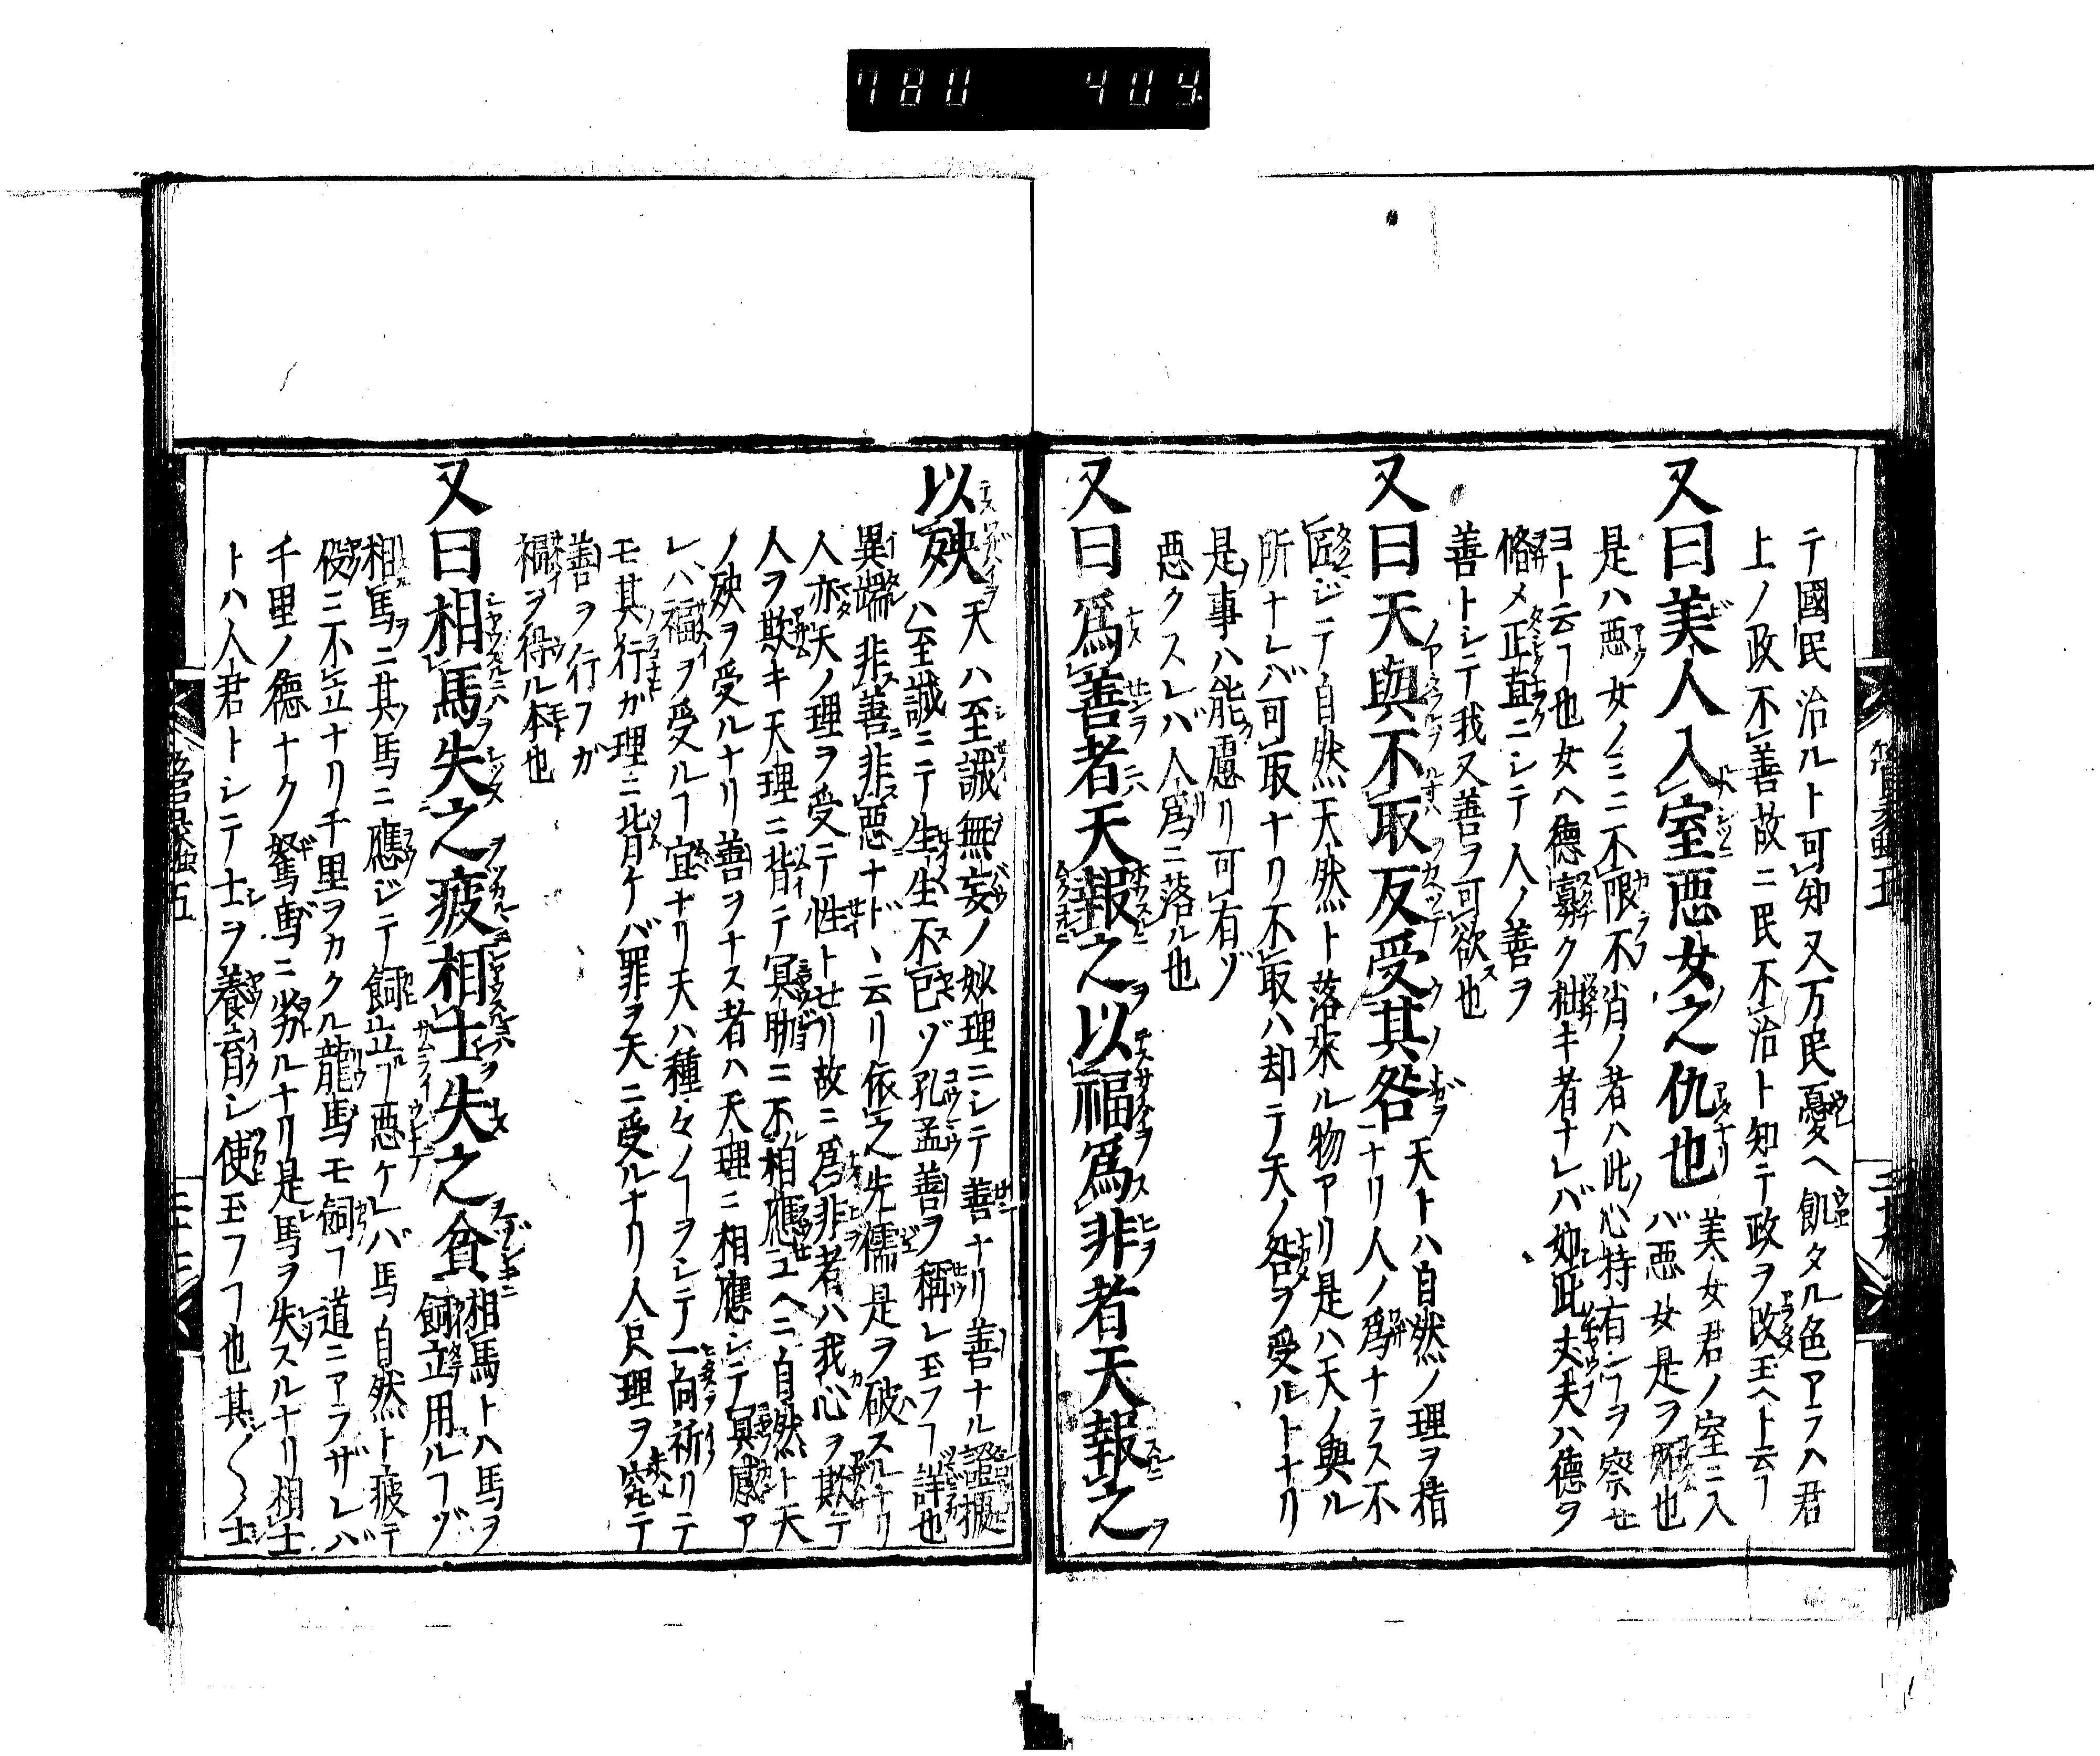 780 404
テ國民治ルト可知又万民憂ヘ飢タル色アラハ君
上ノ政不善故ニ民不治ト知テ政ヲ改玉ヘト云フ
又曰美人入室惡女之仇也 美女君ノ室ニ入
バ惡女是ヲ也
是ハ惡女ノミニ不限不肖ノ者ハ此心特有フヲ察セ
ヨト云フ也女ヘ德寡ク拙キ者ナレバ如此丈夫ハ德ヲ
脩メ正直ニシテ人ノ善ヲ
善トシテ我又善ヲ可欲也
又曰天與不取反受其咎 天トハ自然ノ理ヲ指
ナリ人ノ爲ナラス不
シテ自然天然ト落來ル物アリ是ハ天ノ與ル
所ナレバ可取ナリ不取ハ却テ天ノ咎ヲ受ルトナリ
是事ハ能慮リ可有ゾ
惡クスレバ人爲ニ落ル也
又曰爲善者天報之以福爲非者天報之
以殃 天ハ至誠無妄ノ妙理ニシテ善ナリ善ナル證據
ハ至誠ニテ生生不已ゾ孔孟善ヲ稱シ玉フフ詳也
異端非善非惡ナド云リ依之先儒是ヲ破スルナリ
人亦天ノ理ヲ受テ性トセリ故ニ爲非者ハ我心ヲ欺テ
人ヲ欺キ天理ニ背テ冥助ニ不相應ユヘニ自然ト天
ノ殃ヲ受ルナリ善ヲナス者ハ天理ニ相應シテ冥感ア
レハ福ヲ受ルフ宜ナリ夫ハ種々ノフヲシテ一向祈リテ
モ其行ガ理ニ背ケバ罪ヲ天ニ受ルナリ人只理ヲ究テ
善ヲ行フガ
福ヲ得ル本也
又曰相馬失之疲相士失之貧 相馬トハ馬ヲ
飼立用ルフゾ
相馬ニ其馬ニ應ジテ飼立フ惡ケレバ馬自然ト疲テ
役ニ不立ナリ千里ヲカクル龍馬モ飼フ道ニアラザレバ
千里ノ德ナク駑馬ニ劣ルナリ是馬ヲ失スルナリ相士
トハ人君トシテ士ヲ養育シ使玉フフ也其〱士